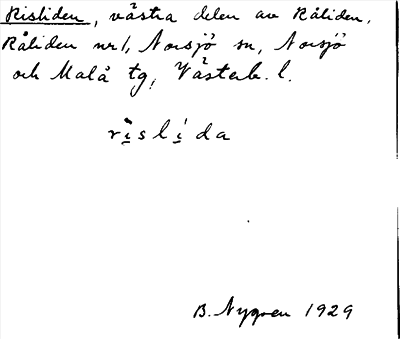 Risliden, västra delen av Råliden,
Råliden nr 1, Norsjö sn, Norsjö
och Malå tg, Västerb. l.
rìslída
B. Nygren 1929